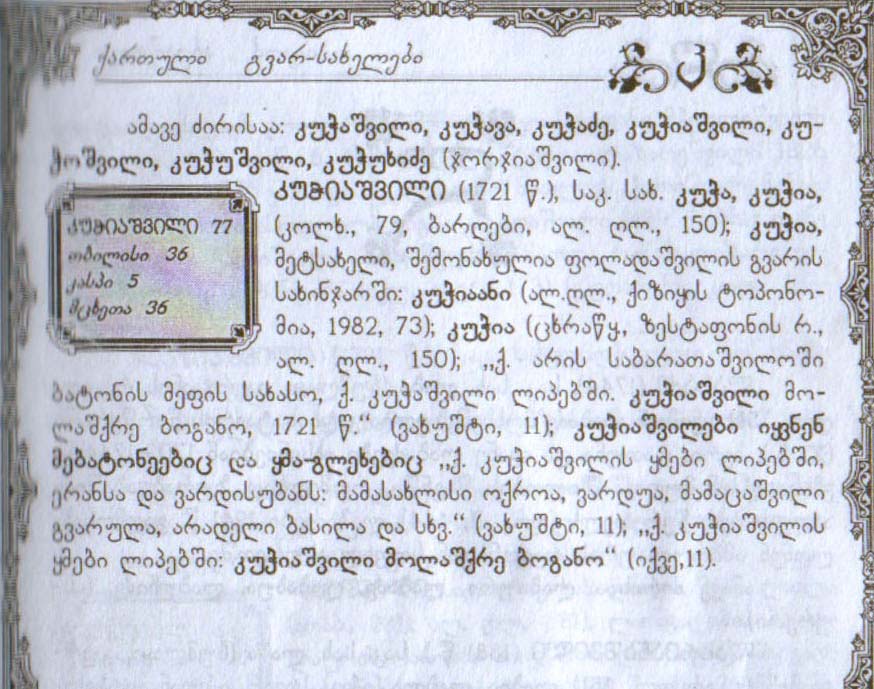 ქართული გვარ-სახელები
კ
ამავე ძირისაა: კუჭაშვილი, კუჭავა, კუჭაძე, კუჭიაშვილი, კუ-
ჭოშვილი, კუჭუშვილი, კუჭუხიძე (ჯორჯიაშვილი).
კუჭიაშვილი 77
თბილისი 36
კასპი 5
მცხეთა 36
კუჭიაშვილი (1721 წ.), საკ. სახ. კუჭა, კუჭია,
(კოლხ., 79, ბარღები, ალ. ღლ., 150); კუჭია,
მეტსახელი, შემონახულია ფოლადაშვილის გვარის
სახინჯარში: კუჭიაანი (ალ.ღლ., ქიზიყის ტოპონო-
მია, 1982, 73); კუჭია (ცხრაწყ, ზესტაფონის რ.,
ალ. ღლ., 150); „ქ. არის საბარათაშვილოში
ბატონის მეფის სახასო, ქ. კუჭიაშვილი ლიპებში. კუჭიაშვილი მო-
ლაშქრე ბოგანო, 1721 წ.“ (ვახუშტი, 11); კუჭიაშვილები იყვნენ
მებატონეებიც და ყმა-გლეხებიც „ქ. კუჭიაშვილის ყმები ლიპებში,
ერანსა და ვარდისუბანს: მამასახლისი ოქროა, ვარდუა, მამაცაშვილი
გვარულა, არადელი ბასილა და სხვ.“ (ვახუშტი, 11); „ქ. კუჭიაშვილის
ყმები ლიპებში: კუჭიაშვილი მოლაშქრე ბოგანო“ (იქვე,11).